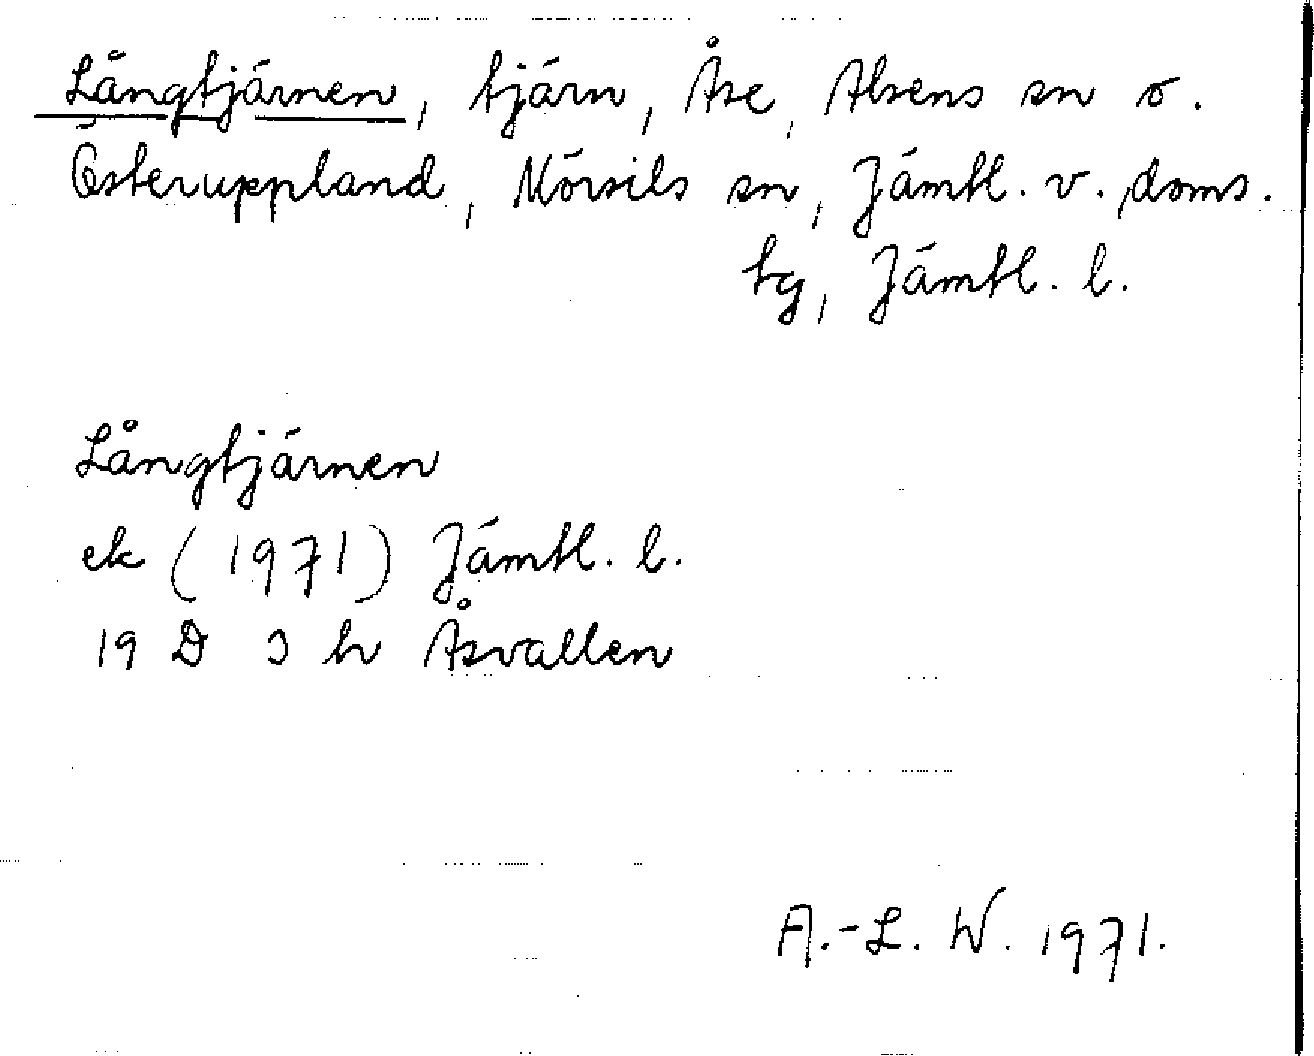 Långtjärnen, tjärn, Åse, Alsens sn o.
Österuppland, Mörsils sn, Jämtl. v. doms.
tg, Jämtl. l.
Långtjärnen
ek (1971) Jämtl. l.
19 D 3 h Åsvallen
A.-L. W. 1971.